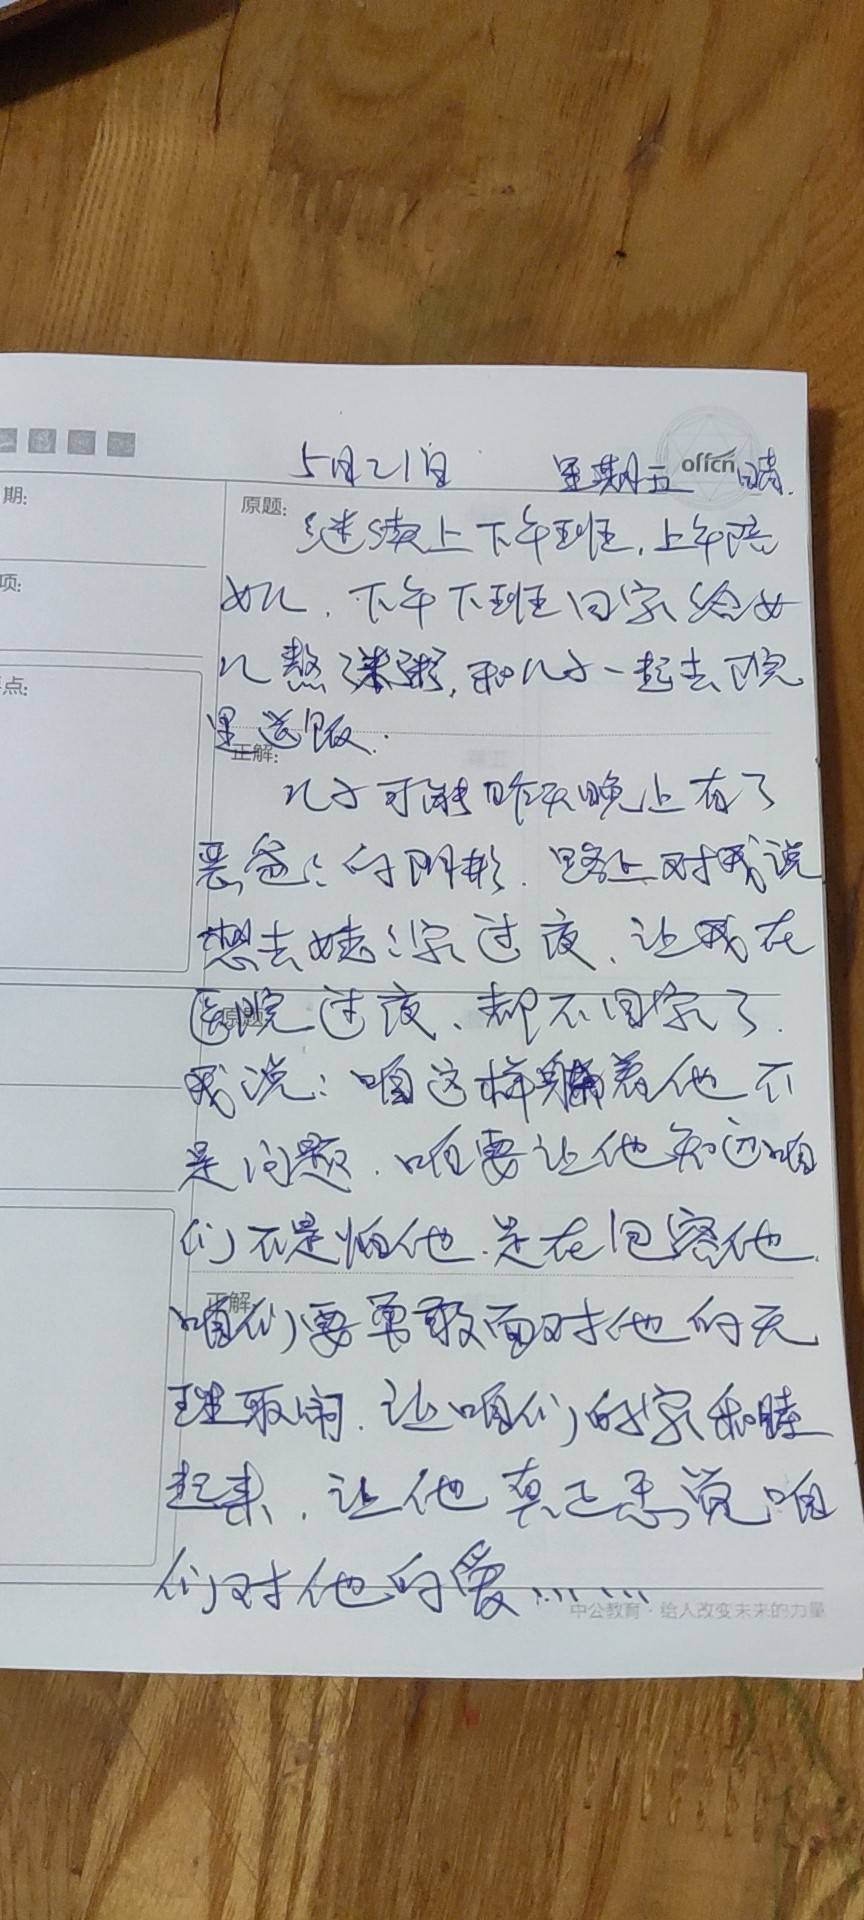 5月21日 星期五 晴.
offcn
期:
原题:
继续上下午班,上午陪
女儿、下午下班回家给女
项:
儿熬粥,和儿子一起去院
点:
里送饭.
正解:
儿子可能昨天晚上有了
恶爸爸的阴影.路上对我说
想去姥姥家过夜、让我在
原题
医院过夜、都不回家了.
我说:咱这样躲着他不
是问题、咱要让他知道咱
们不是怕他.是在包容他.
正解
咱们要勇敢面对他的无
理取闹.让咱们的家和睦
起来、让他真正感觉咱
们对他的爱……
中公教育·给人改变未来的力量